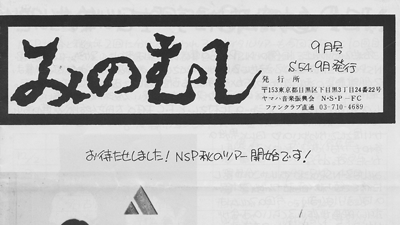 みのむし
9月号
S54.9月発行
発行所
〒153東京都目黒区下目黒3丁目24番22号
ヤマハ音楽振興会 N・S・P－FC
ファンクラブ直通 03-710-4689
お待たせしました！NSP秋のツアー開始です！